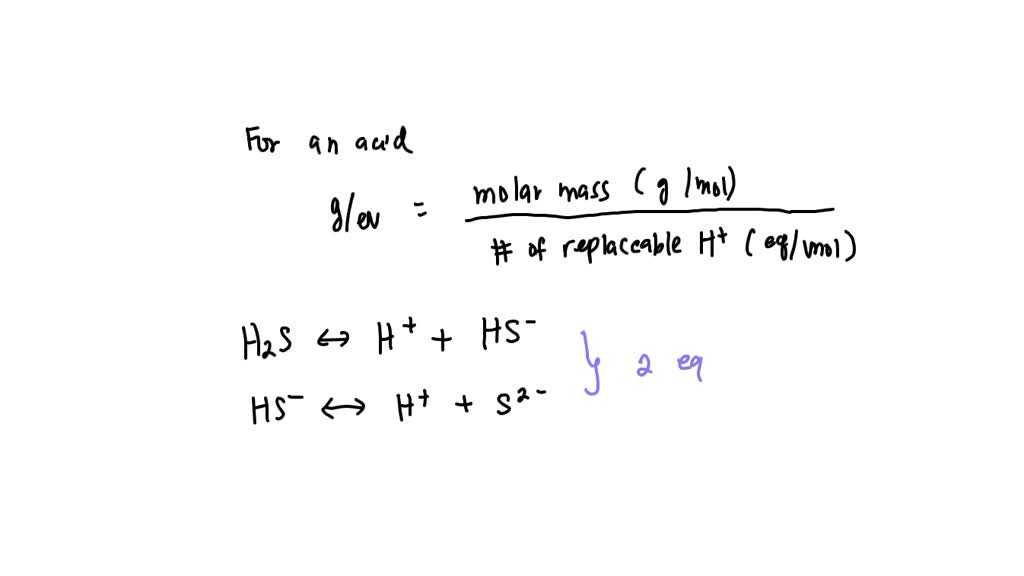 For an acid
g/eq = molar mass (g/mol)
# of replaceable H⁺ (eq/mol)
H₂S ↔ H⁺ + HS⁻
HS⁻ ↔ H⁺ + S²⁻
} 2 eq